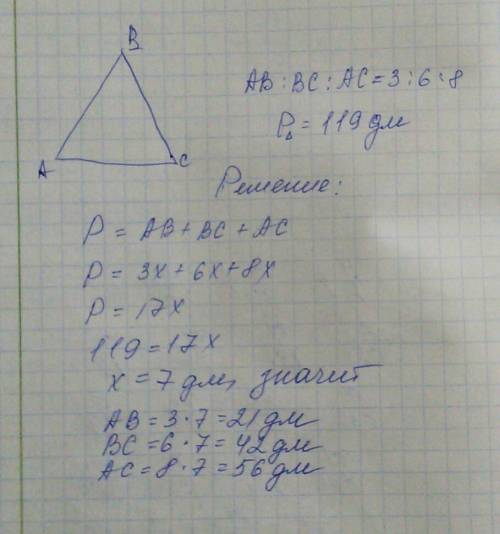 B
A
C
AB : BC : AC = 3 : 6 : 8
P△ = 119 дм
Решение:
P = AB + BC + AC
P = 3x + 6x + 8x
P = 17x
119 = 17x
x = 7 дм, значит
AB = 3 · 7 = 21 дм
BC = 6 · 7 = 42 дм
AC = 8 · 7 = 56 дм